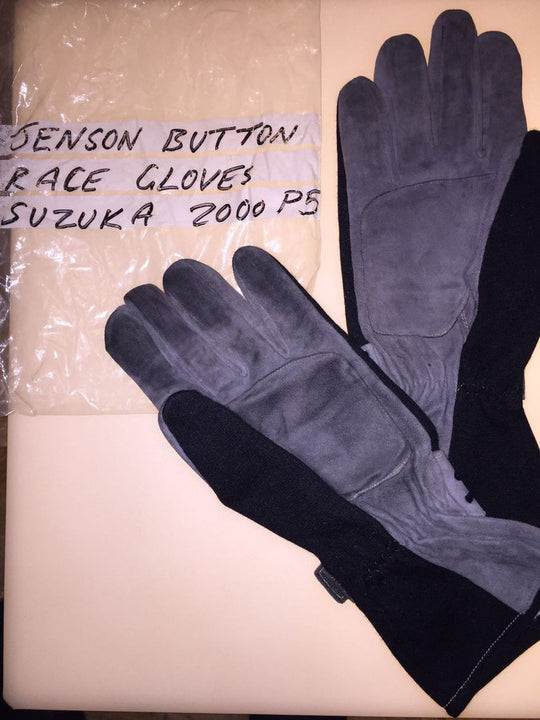 JENSON BUTTON
RACE GLOVES
SUZUKA 2000 P5